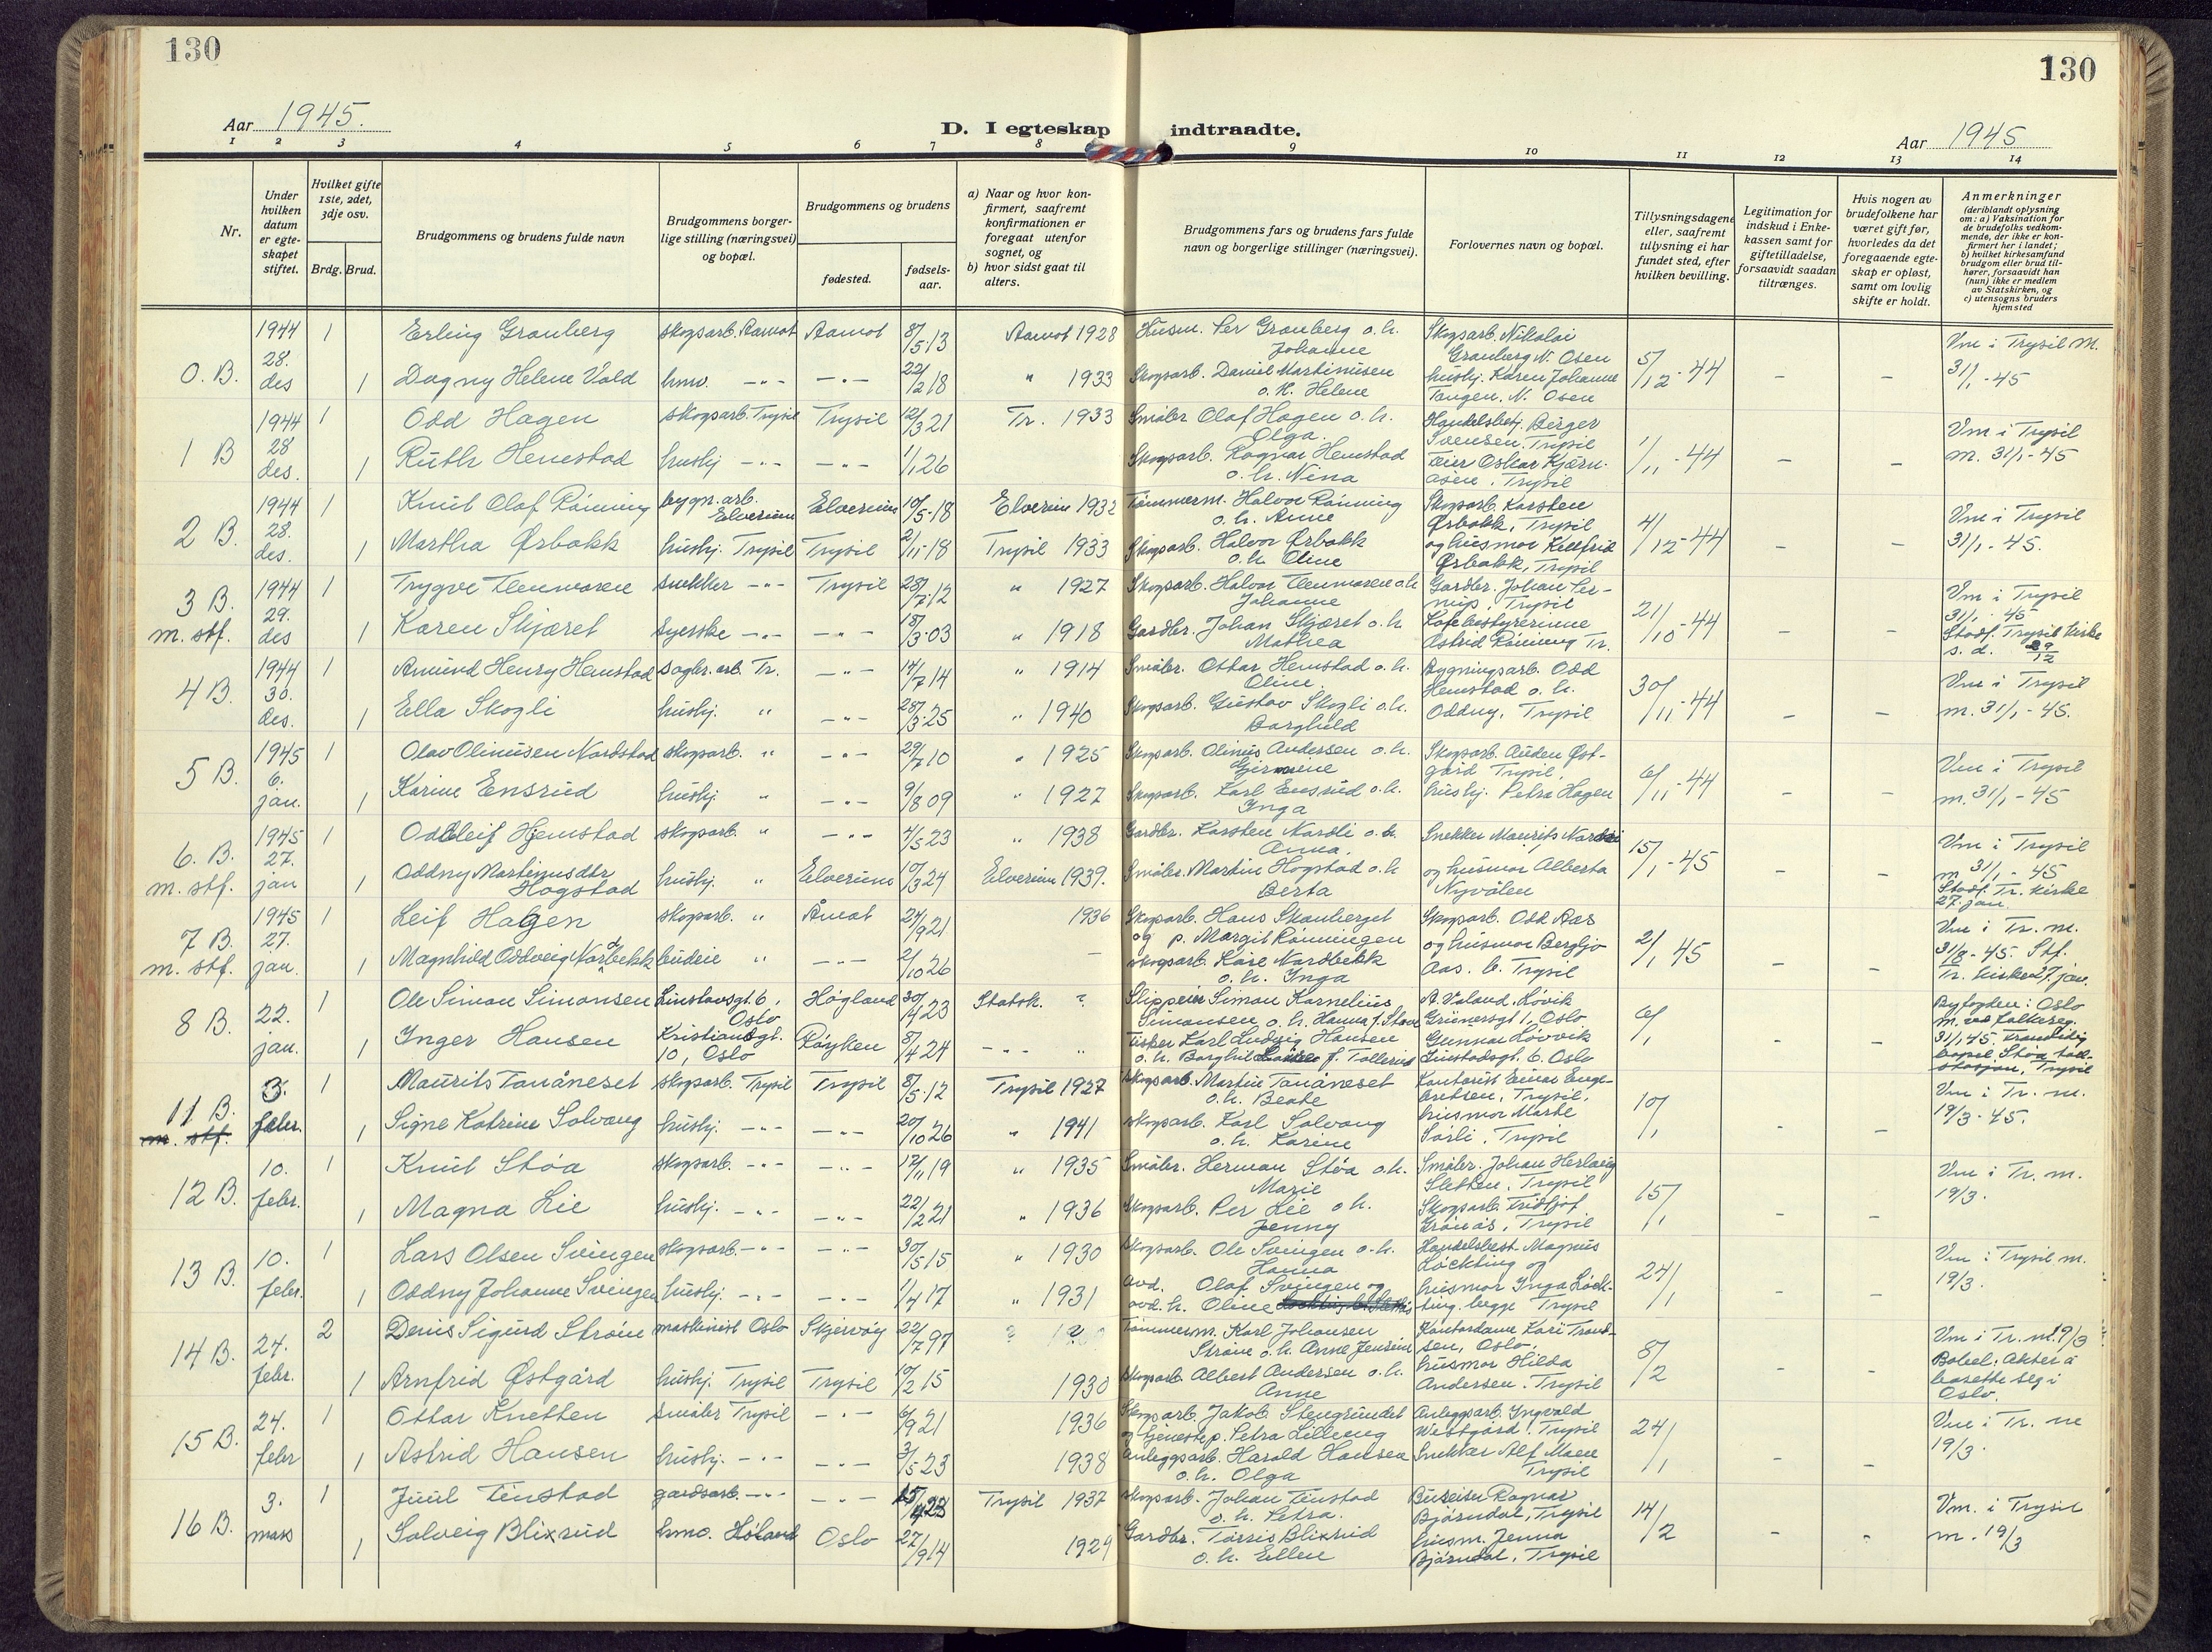 130
130
Aar 1945.
D. I egteskap indtraadte.
Aar 1945
1 2 3 4 5 6 7 8 9 10 11 12 13 14
Nr.
Under hvilken datum er egteskapet stiftet.
Hvilket gifte 1ste, 2det, 3dje osv.
Brdg. Brud.
Brudgommens og brudens fulde navn
Brudgommens borgerlige stilling (næringsvei) og bopæl.
Brudgommens og brudens
fødested.
fødselsaar.
a) Naar og hvor konfirmert, saafremt konfirmationen er foregaat utenfor sognet, og
b) hvor sidst gaat til alters.
Brudgommens fars og brudens fars fulde navn og borgerlige stillinger (næringsvei).
Forlovernes navn og bopæl.
Tillysningsdagene eller, saafremt tillysning ei har fundet sted, efter hvilken bevilling.
Legitimation for indskud i Enkekassen samt for giftetilladelse, forsaavidt saadan tiltrænges.
Hvis nogen av brudefolkene har været gift før, hvorledes da det foregaaende egteskap er opløst, samt om lovlig skifte er holdt.
Anmerkninger
(deriblandt oplysning om: a) Vaksination for de brudefolks vedkommende, der ikke er konfirmert her i landet; b) hvilket kirkesamfund brudgom eller brud tilhører, forsaavidt han (hun) ikke er medlem av Statskirken, og c) utensogns bruders hjemsted
0. B. 1944 28. des 1 Erling Granberg skogsarb. Aamot Aamot 8/5-13 Aamot 1928 Husm. Per Granberg o.h. Johanne Skogsarb. Nikolai Granberg N. Osen 5/12-44 - - Vm i Trysil m. 31/1-45
1 Dagny Helene Vold hmv. -"- -"- 22/2 18 " 1933 Skogsarb. Daniel Martinusen o.h. Helene hushj. Karen Johanne Tangen. N. Osen
1 B 1944 28 des. 1 Odd Hagen skogsarb. Trysil Trysil 12/3 21 Tr. 1933 Småbr. Olaf Hagen o.h. Olga. Handelsbetj. Birger Svensen. Trysil 1/11-44 - - Vm i Trysil m. 31/1-45
1 Ruth Hemstad hushj -"- -"- 1/1 26 Skogsarb. Ragnar Hemstad o.h. Nina Feier Oskar Kjærnåsen. Trysil
2 B. 1944 28. des. 1 Knut Olaf Rønning bygn.arb. Elverum Elverum 10/5-18 Elverum 1932 Tømmerm. Halvor Rønning o.h. Anne Skogsarb. Karsten Ørbakk, Trysil 4/12-44 - - Vm i Trysil 31/1-45.
1 Martha Ørbakk hushj. Trysil Trysil 2/11-18 Trysil 1933 Skogsarb. Halvor Ørbakk o.h. Oline og husmor Ørbakk, Trysil
3 B. m. stf. 1944 29. des 1 Trygve Tenmoren snekker -"- Trysil 28/7-12 " 1927 Skogsarb. Halvor Tenmoren o.h. Johanne Gardbr. Johan Trysil 21/10-44 - - Vm i Trysil 31/1-45 Stadf. Trysil kirke s.d. 29/12
1 Karen Skjæret syerske -"- -"- 18/3-03 " 1918 Gardbr. Johan Skjæret o.h. Mathea Kafebestyrerinne Astrid Rønning Tr.
4 B. 1944 30. des. 1 Amund Henry Hemstad Sagbr. arb. Tr. -"- 14/7 14 " 1914 Småbr. Ottar Hemstad o.h. Oline Bygningsarb. Odd Hemstad o.h. Oddny, Trysil 30/11-44 - - Vm i Trysil m. 31/1-45.
1 Ella Skogli hushj. " -"- 28/3-25 " 1940 Skogsarb. Gustav Skogli o.h. Borghild
5 B. 1945 6. jan. 1 Olav Olinusen Nordstad skogsarb. " -"- 29/7 10 " 1925 Skogsarb. Olinus Andersen o.h. Skogsarb. Auden Østgård Trysil, 6/11-44 - - Vm i Trysil m. 31/1-45
1 Karine Ensrud hushj. " -"- 9/8 09 " 1927 Skogsarb. Karl Ensrud o.h. Inga hushj. Petra Hagen
6. B. m. stf. 1945 27. jan 1 Oddleif Hjemstad skogsarb. " -"- 4/5 23 " 1938 Gardbr. Karsten Nordli o.h. Anna. Snekker Maurits 15/1-45 - - Vm i Trysil m 31/1-45 Stadf. Tr. kirke 27. jan.
1 Oddny Martinusdtr Hogstad hushj. " Elverum 10/3 24 Elverum 1939. Småbr. Martin Hogstad o.h. Berta og husmor Alberta Nyvålen
7 B. m. stf. 1945 27. jan. 1 Leif Hagen skogsarb. " Åmot 24/9 21 1936 Skogsarb. Hans Skanberget og p. Margit Rønningen Skogsarb. Odd Aas 2/1 45 - - Vm i Tr. m. 31/8-45. Stf. Tr. kirke 27 jan.
1 Magnhild Oddveig Nordbekk budeie " -"- 2/10 26 - skogsarb. Kåre Nordbekk o.h. Inga og husmor Bergljo Aas. b. Trysil
8 B. 22. jan. 1 Ole Simon Simonsen Linstowsgt. 6, Oslo Høgland 30/4 23 Statsk. ? Simon Kornelius Simonsen o.h. Hanna f. A. Valand, Løvik Grünersgt 1, Oslo 6/1 Byfogden i Oslo m. ved folkereg. 31/1 45.
1 Inger Hansen Kristiandsgt. 10, Oslo Røyken 8/4 24 -"- " Fisker Karl Ludvig Hansen o.h. Borghild f. Tollerud Gunnar Løvvik 6. Oslo
11 B. m. stf. 3. febr. 1 Maurits Tanåneset skogsarb. Trysil Trysil 8/5-12 Trysil 1927 skogsarb. Martin Tanåneset o.h. Beate Kontorist Einar Engebretsen, Trysil, 10/1 - - Vm i Tr. m. 19/3-45.
1 Signe Katrine Solvang hushj. -"- -"- 20/10 26 " 1941 skogsarb. Karl Solvang o.h. Karine husmor Marte Sørli, Trysil
12 B. 10. febr. 1 Knut Støa skogsarb. -"- -"- 12/11 19 " 1935 Småbr. Herman Støa o.h. Marie Småbr. Johan Herlaug Sletten, Trysil 15/1 - - Vm i Tr. m. 19/3.
1 Magna Lie hushj. -"- -"- 22/2 21 " 1936 Skogsarb. Per Lie o.h. Jenny Skogsarb. Fridtjof Grønås, Trysil
13 B. 10. febr. 1 Lars Olsen Svingen skogsarb. -"- -"- 30/5 15 " 1930 Skogsarb. Ole Svingen o.h. Hanna Handelsbest. Magnus Løckting og 24/1 - - Vm i Trysil m. 19/3.
1 Oddny Johanne Svingen hushj. -"- -"- 1/4 17 " 1931 avd. Olaf Svingen og avd. h. Oline husmor Inga Løckting. begge Trysil
14 B. 24. febr. 2 Denis Sigurd Strøm maskinist Oslo Skjervøy 22/7 97 ? ? Tømmerm. Karl Johansen Strøm o.h. Anne Jensine Kontordame Kari Trondsen, Oslo, 8/2 - - Vm i Tr. m. 19/3 Bobel: Akter å bosette seg i Oslo.
1 Arnfrid Østgård hushj. Trysil Trysil 10/2 15 1930 skogsarb. Albert Andersen o.h. Anne husmor Hilda Andersen. Trysil
15 B. 24. febr 1 Ottar Knetten småbr Trysil -"- 6/9 21 1936 Skogsarb. Jakob Stengrundet og tjenestep. Petra Lilleeng Anleggsarb. Ingvald Westgård. Trysil 24/1 - - Vm i Tr. m 19/3.
1 Astrid Hansen hushj. -"- -"- 3/5 23 1938 Anleggsarb. Harald Hansen o.h. Olga Snekker Alf Moen Trysil
16 B. 3. mars 1 Juul Tinstad gardsarb. -"- -"- Trysil 1937 skogsarb. Johan Tinstad o.h. Petra. Bureiser Ragnar Bjørndal, Trysil 14/2 - - Vm. i Trysil m. 19/3
1 Solveig Blixrud hmv. Høland Oslo 27/9 14 1929 Gardbr. Tørris Blixrud o.h. Ellen husm. Jenna Bjørndal, Trysil